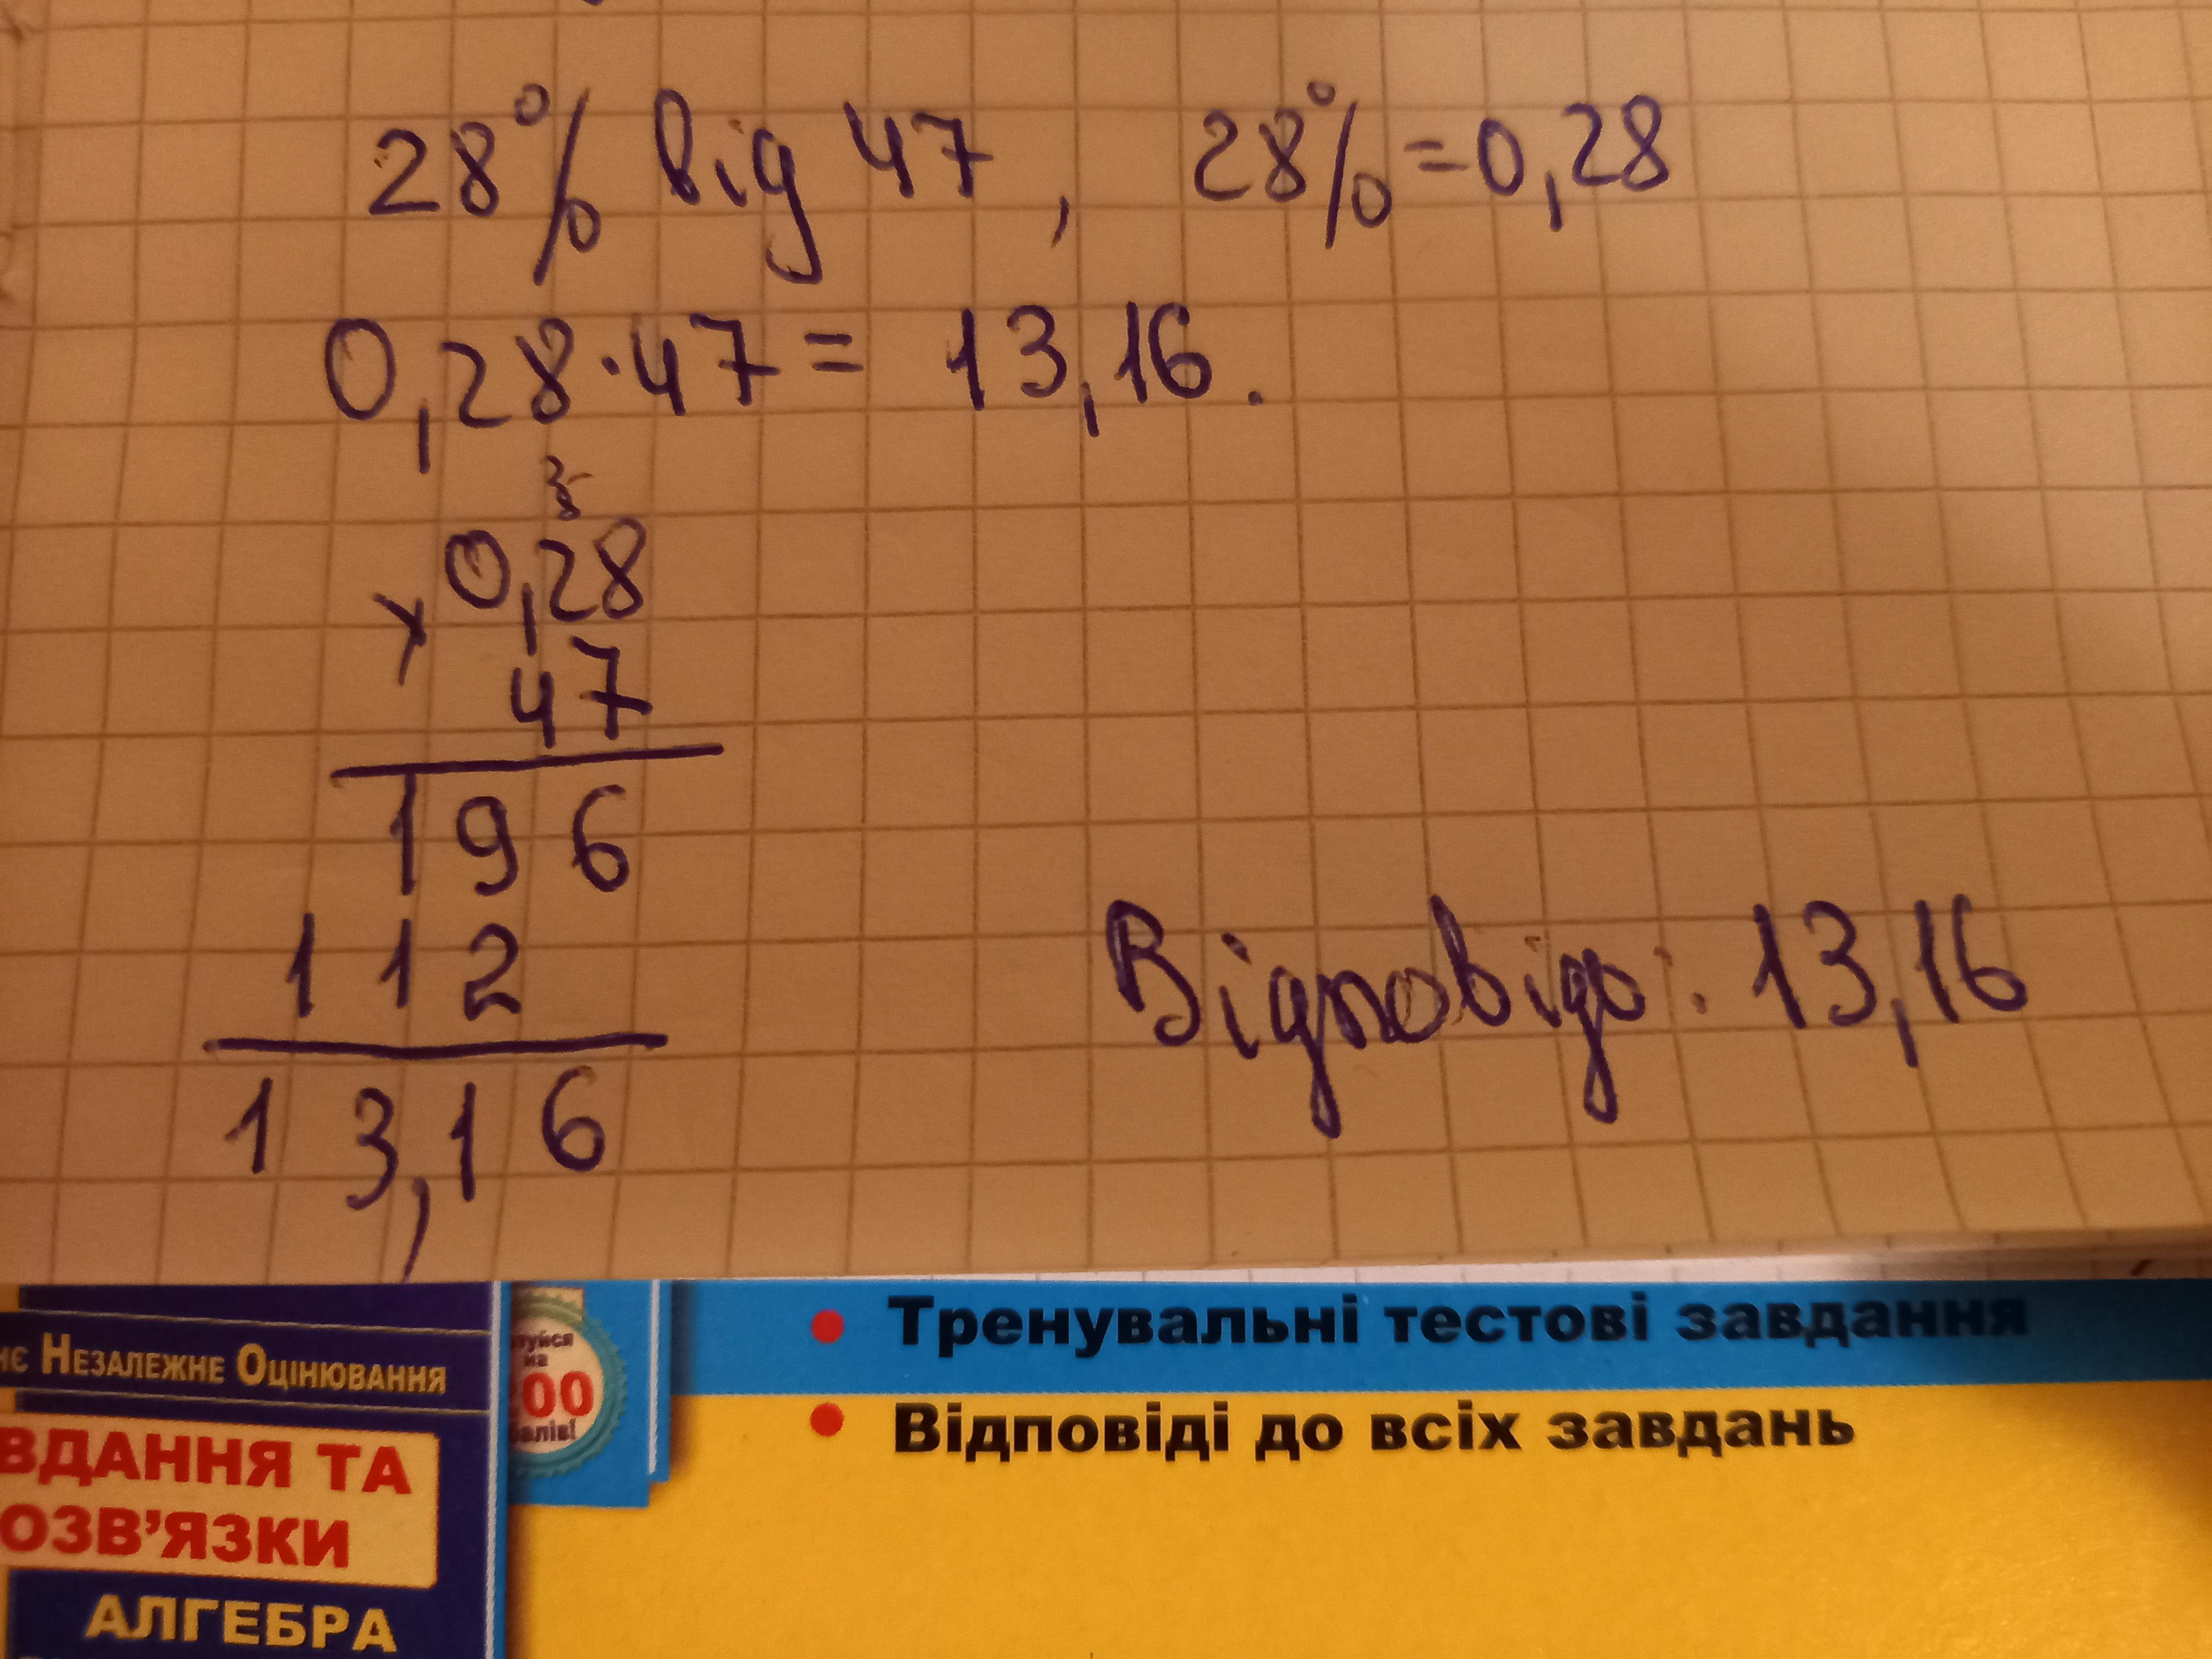 28% від 47, 28% = 0,28
0,28·47 = 13,16.
0,28
× 47
196
112
13,16
Відповідь: 13,16
НЕЗАЛЕЖНЕ ОЦІНЮВАННЯ
ТА
АЛГЕБРА
на
• Тренувальні тестові завдання
• Відповіді до всіх завдань